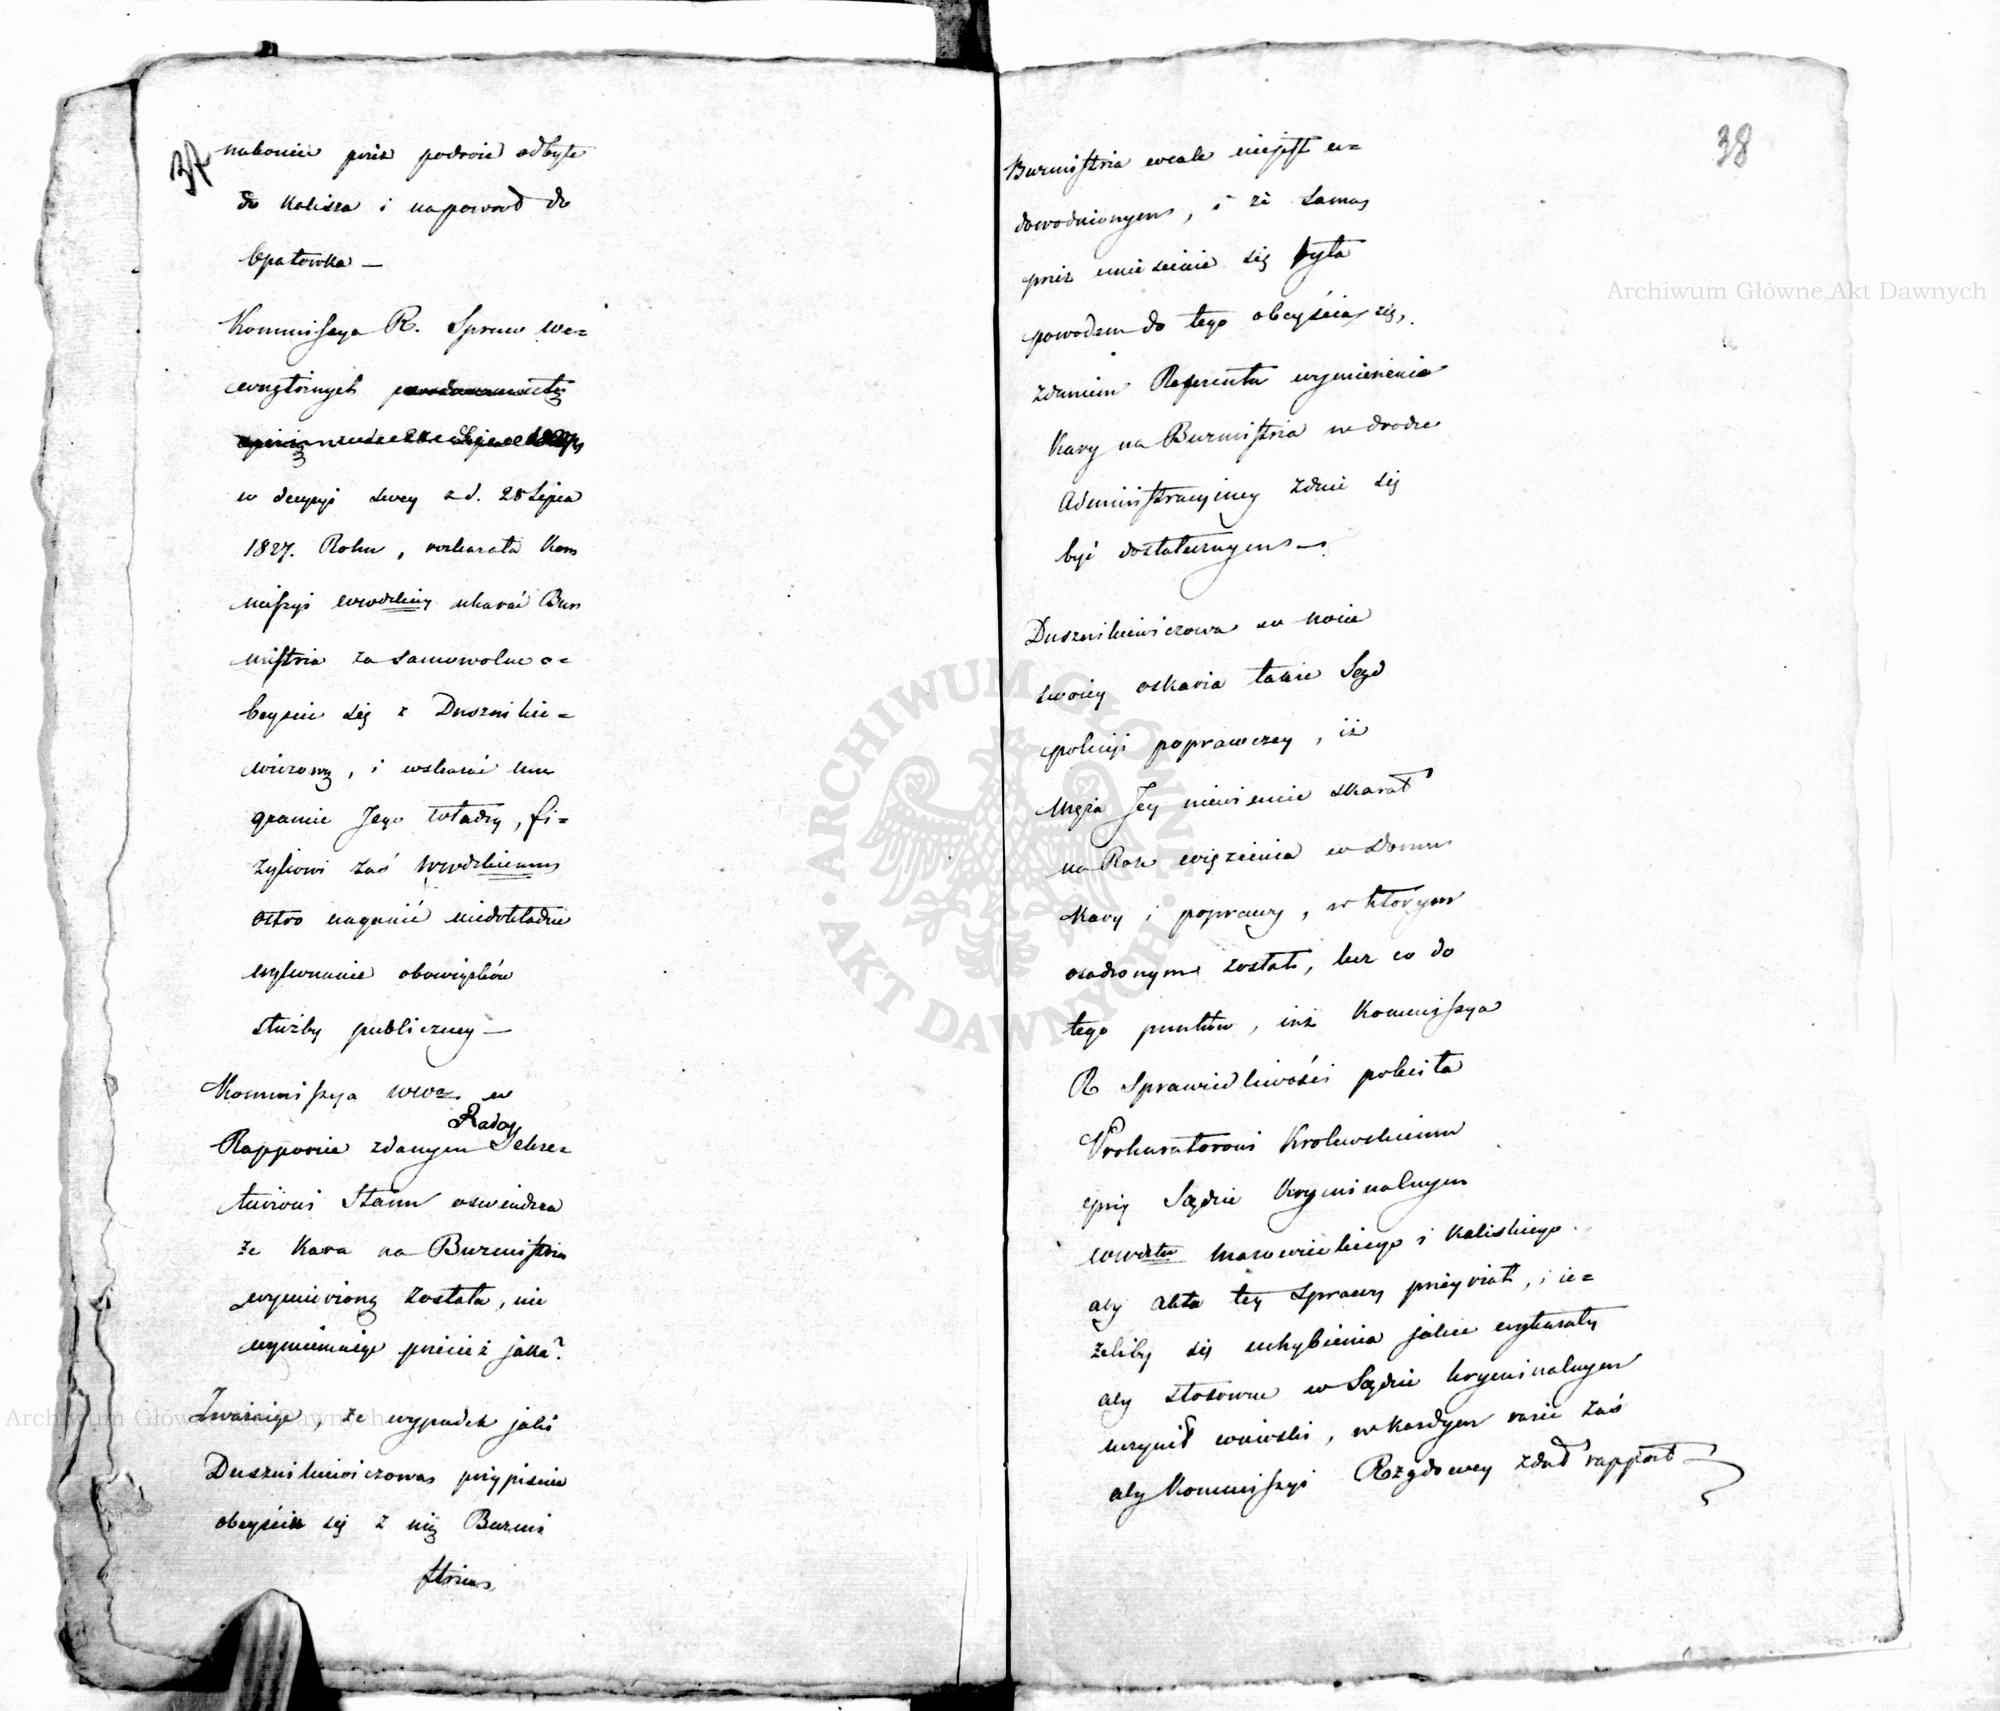 37
nakoniec przez podroż odbytą
do Kalisza i napowrod do
Opatowka —
Kommissya R. Spraw We=
wnętrznych
w decyzyi swey z d. 28 Lipca
1827. Roku, rozkazała Kom
missyi Wwdzkiey ukarać Bur
mistrza za samowolne o=
beyscie się z Duszni kie=
wiczową, i wskazać mu
granice Jego władzy, fi=
zykowi zaś Wwdzkiemu
ostro naganić niedokładne
wykonanie obowiązków
służby publiczney —
Kommissya Wwz. w
Rapporcie zdanym Rady Sekre=
tarzowi Stanu oswiadcza
że kara na Burmistrza
wymierzoną została, nie
wymieniaiąc przecież jaka?
Zważaiąc, że wypadek jaki
Duszni kiewiczowa przypisuie
obeyściu się z nią Burmi
strza
38
Burmistrza wcale niejest u=
dowodnionym, i że sama
przez uniesienie się była
powodem do tego obeyścia się,
zdaniem Referenta wymierzenie
Kary na Burmistrza w drodze
Administracyiney zdaie się
być dostatecznym —
Duszni kiewiczowa w nocie
swoiey oskarża także Sąd
policyi poprawczey, iż
Męża Jey niewinnie skazał
na Rok więzienia w Domu
Kary i poprawy, w którym
osadzonym został, lecz co do
tego punktu, już Kommissya
R Sprawiedliwości poleciła
Prokuratorowi Krolewskiemu
przy Sądzie Kryminalnym
Wwdztw Mazowieckiego i Kaliskiego
aby akta tey sprawy przeyrzał, i ie=
żeliby się uchybienia jakie wykazały
aby stosowne w Sądzie kryminalnym
uczynił wnioski, w każdym razie zaś
aby Kommissyi Rządowey zdał rapport —
Archiwum Główne Akt Dawnych
Archiwum Główne Akt Dawnych
ARCHIWUM GŁÓWNE AKT DAWNYCH